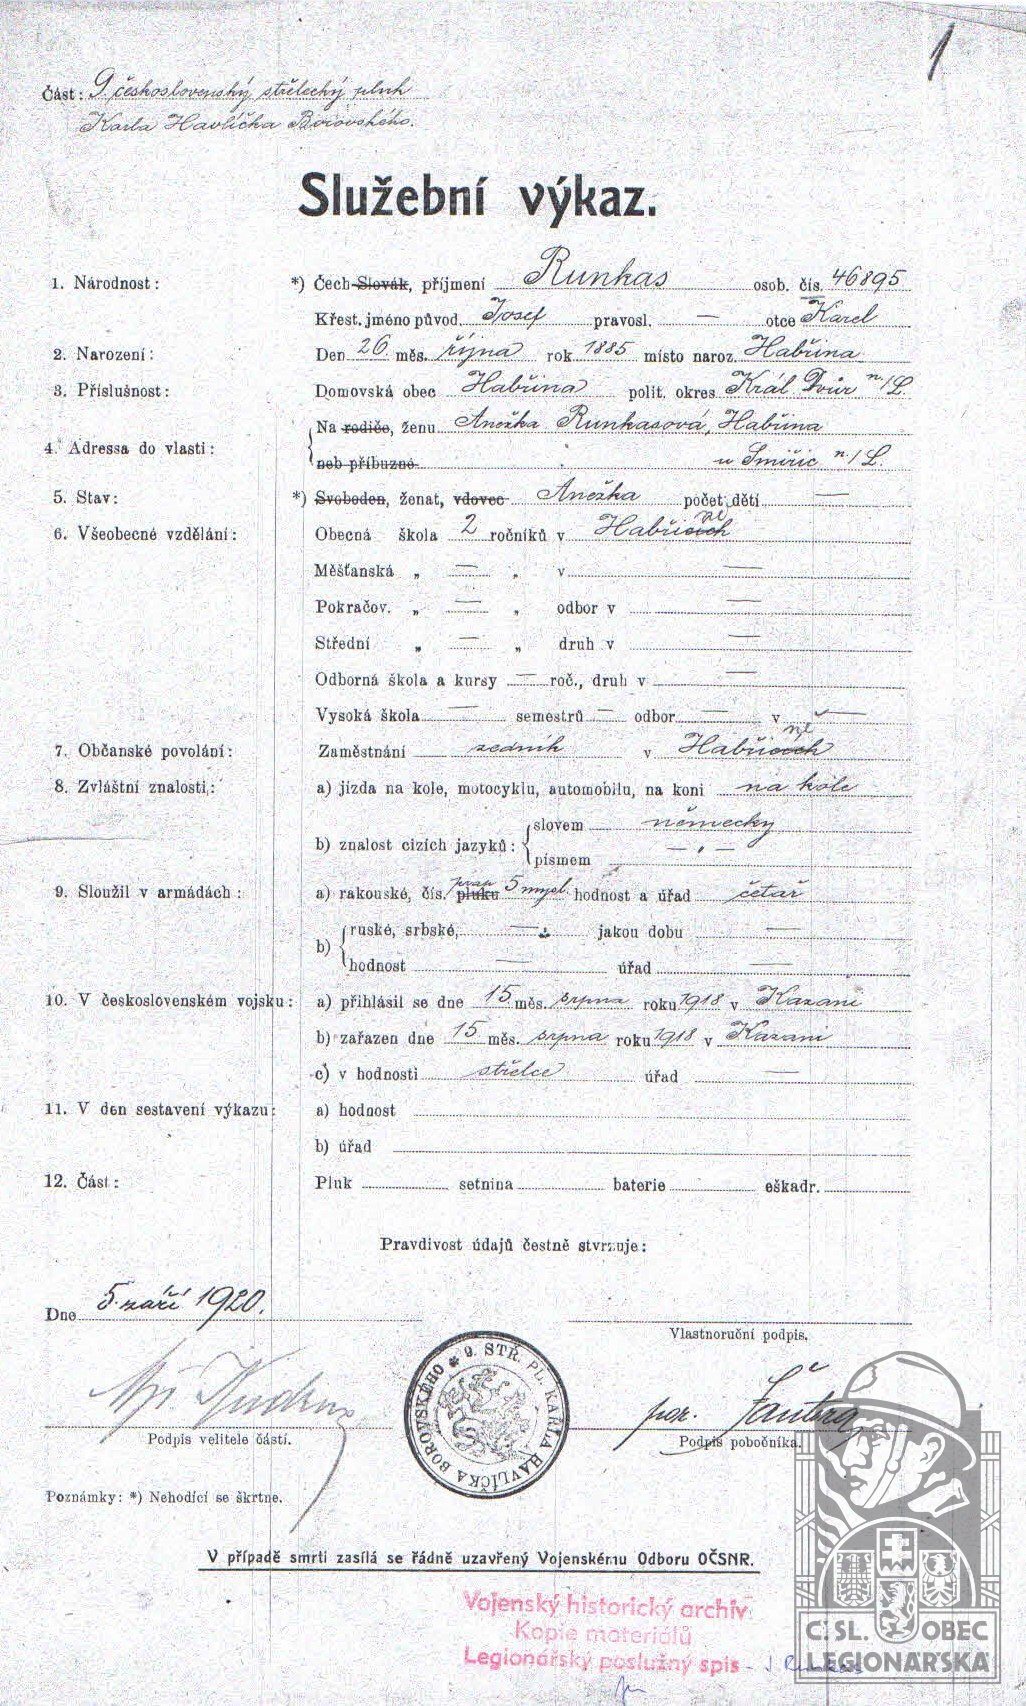 1
Část: 9. československý střelecký pluk
Karla Havlíčka Borovského.
Služební výkaz.
1. Národnost: *) Čech Slovák, příjmení Runkas osob. čís. 46895
Křest. jméno původ. Josef pravosl. — otce Karel
2. Narození: Den 26 měs. října rok 1885 místo naroz. Habřina
3. Příslušnost: Domovská obec Habřina polit. okres Král. Dvůr n./L.
4. Adressa do vlasti: Na rodiče, ženu Anežka Runkasová, Habřina
neb příbuzné u Smiřic n./L.
5. Stav: *) Svoboden, ženat, vdovec Anežka počet dětí —
6. Všeobecné vzdělání: Obecná škola 2 ročníků v Habřině
Měšťanská „ — „ v —
Pokračov. „ — „ odbor v —
Střední „ — „ druh v —
Odborná škola a kursy — roč., druh v —
Vysoká škola — semestrů — odbor — v —
7. Občanské povolání: Zaměstnání zedník v Habřině
8. Zvláštní znalosti: a) jízda na kole, motocyklu, automobilu, na koni na kole
b) znalost cizích jazyků: slovem německy
písmem — „ —
9. Sloužil v armádách: a) rakouské, čís. pluku prap 5 mysl. hodnost a úřad četař
b) ruské, srbské, — jakou dobu —
hodnost — úřad —
10. V československém vojsku: a) přihlásil se dne 15 měs. srpna roku 1918 v Kazani
b) zařazen dne 15 měs. srpna roku 1918 v Kazani
c) v hodnosti střelce úřad —
11. V den sestavení výkazu: a) hodnost
b) úřad
12. Část: Pluk setnina baterie eškadr.
Pravdivost údajů čestně stvrzuje:
Dne 5. září 1920.
Vlastnoruční podpis.
9. STŘ. PL. KARLA HAVLÍČKA BOROVSKÉHO
por.
Podpis velitele části.
Podpis pobočníka.
Poznámky: *) Nehodící se škrtne.
V případě smrti zasílá se řádně uzavřený Vojenskému Odboru OČSNR.
Vojenský historický archiv
Kopie materiálů
Legionářský poslužný spis - J. Runkas
ČSL. OBEC
LEGIONÁŘSKÁ